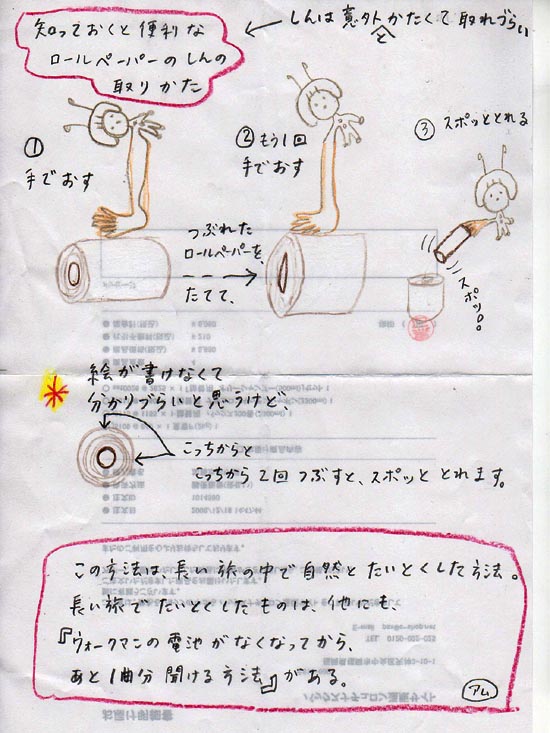 知っておくと便利な
ロールペーパーのしんの
取りかた
しんは意外とかたくて取れづらい
①
手でおす
②もう1回
手でおす
③スポッととれる
つぶれた
ロールペーパーを、
たてて、
スポッ。
絵が書けなくて
分かりづらいと思うけど、
こっちからと
こっちから2回つぶすと、スポッととれます。
この方法は長い旅の中で自然とたいとくした方法。
長い旅でたいとくしたものは、他にも、
『ウォークマンの電池がなくなってから、
あと1曲分聞ける方法』がある。
アム